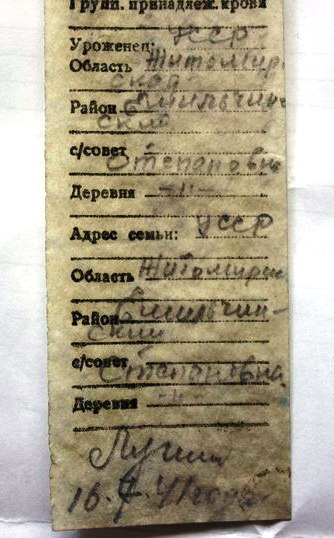 Групп. принадлеж. крови
Уроженец: УССР
Область Житомир
ская
Район Емильчин
ский
с/совет
Степановка
Деревня —"—
Адрес семьи: УССР
Область Житомирск
Район Емильчин-
ский
с/совет
Степановка
Деревня —"—
16.7.41 года